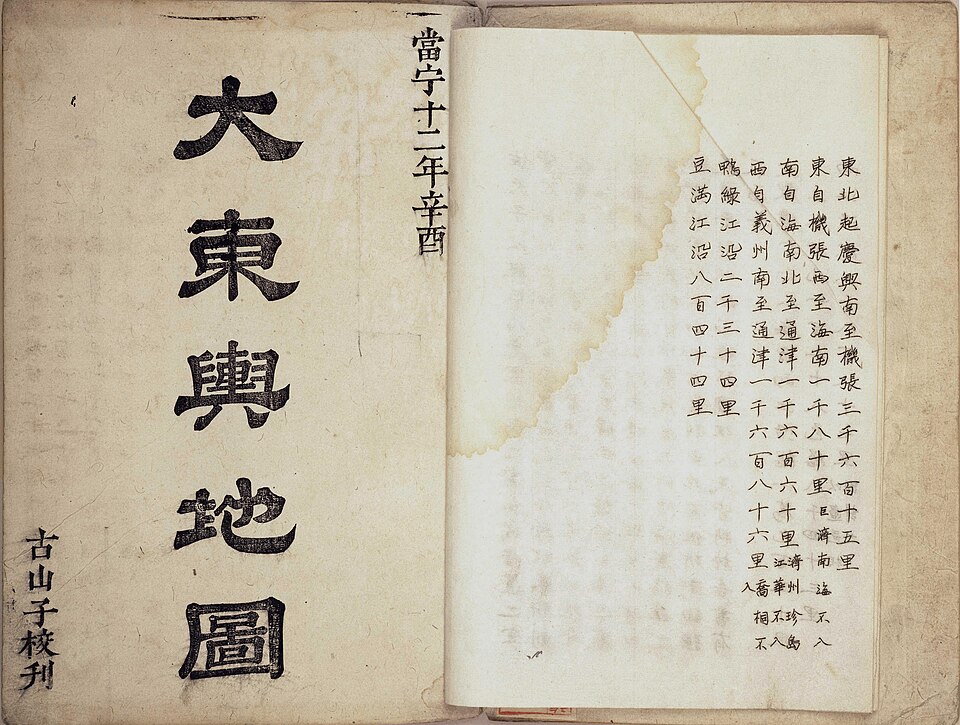 東北起慶興南至機張三千六百十五里
東自機張西至海南一千八十里巨濟南海不入
南自海南北至通津一千六百六十里濟州珍島江華不入
西自義州南至通津一千六百八十六里喬桐不入
鴨綠江沿二千三十四里
豆滿江沿八百四十四里
當宁十二年辛酉
大東輿地圖
古山子校刊